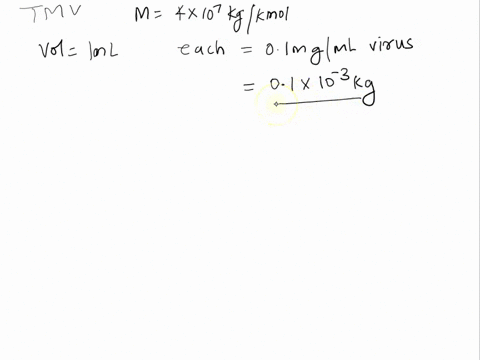 TMV M = 4×10⁷ kg/kmol
Vol = 1mL each = 0.1mg/mL virus
= 0.1 × 10⁻³ kg